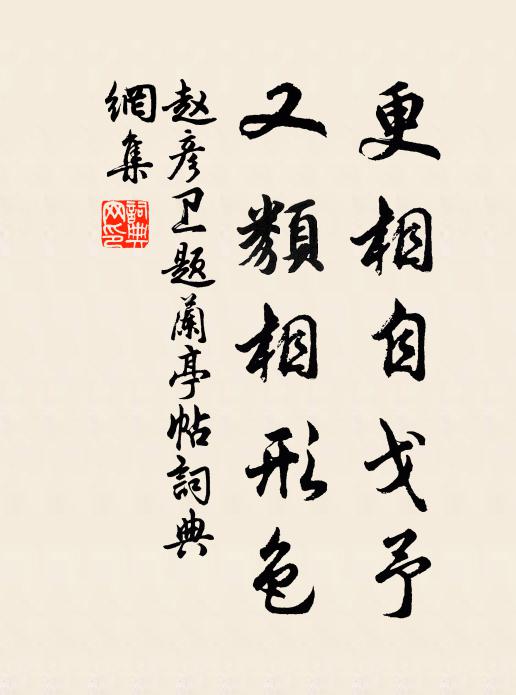 更相自戈予
又類相形色
赵彦卫题蘭亭帖詞典
網集
詞典
网印